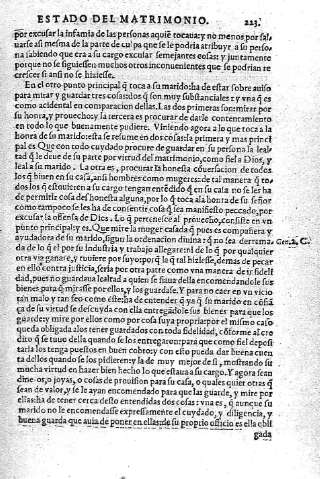 ESTADO DEL MATRIMONIO. 223.
por excusar la infamia de las personas aquiē tocaua: y no menos por sal,
uarse asi mesma de la parte de culpa que se le podria atribuyr a su perso
na sabiendo que era a su cargo excular semejantes cosas: y juntamente
porque no se siguiessen muchos otros inconuenientes que se podrian re
crescer si ansi no se hiziesse.
En el otro punto principal q̄ toca a su marido: ha de estar sobre auiso
para mirar y guardar tres cosas: dos q̄ son muy substanciales: z y vna q̄ es
como acidental en comparacion dellas. Las dos primeras son: mirar por
su honra, y prouecho: y la tercera es procurar de darle contentamiento
en todo lo que buenamente pudiere. Viniendo agora a lo que toca a la
honra de su marido: esta se resume en dos cosas: la primera y mas princi
pal es Que con todo cuydado procure de guardar en su persona la leal
tad q̄ le deue de su parte por virtud del matrimonio, como fiel a Dios, y
leal a su marido. La otra es, procurar la honesta cōuersacion de todos
los q̄ biuen en su casa, ansi hombres como mugeres: de tal manera q̄ to,
dos los q̄ estouieren a su cargo tengan entēdido q̄ en su casa no se les ha
de permitir cosa desonesta alguna, por lo q̄ toca a la honra de su señor
como tampoco se les ha de consentir cosa q̄ sea manifiesto peccado, por
excusar la offensa de Dios. Lo q̄ pertenesce al prouecho, consiste en vn
punto principal: y es. Que mire la muger casada q̄ pues es compañera y
ayudadora de su marido, segun la ordenacion diuina: q̄ no sea derrama, Gen. 2. C.
da de lo q̄ el por su industria y trabajo allegare: ni de lo q̄ por qualquier
otra via ganare, y tuuiere por suyo: porq̄ la q̄ tal hiziesse, demas de pecar
en ello contra justicia, seria por otra parte como vna manera de infideli
dad, pues no guardaua lealtad a quien se fiaua della encomendandole sus
bienes para q̄ mirasse por ellos, y los guardasse. Y para no caer en vn vicio
tan malo y tan feo como este: ha de entender q̄ ya q̄ su marido en cōfiā
ça de su virtud se descuyda con ella entregādole sus bienes para que los
guarde: y mire por ellos como por cosa suya propria: por el mismo caso
queda obligada a los tener guardados con toda fidelidad, cōforme al cre
dito q̄ se tuuo della quando se los entregaron: para que como fiel deposi
taria los tenga puestos en buen cobro: y con esto pueda dar buena cuen
ta dellos quando se los pidieren: y la de muy mejor de si, mostrando su
mucha virtud en hazer bien hecho lo que estaua a su cargo. Y agora sean
dineros, o joyas, o cosas de prouission para su casa, o quales quier otras q̄
sean de valor, y se le ayan encomendado para que las guarde, y mire por
ellas: ha de tener cerca desto entendidas dos cosas: vna es, q̄ aunque su
marido no le encomendasse expressamente el cuydado, y diligencia, y
buena guarda que auia de poner en ellas: de su proprio officio es ella obli
gada